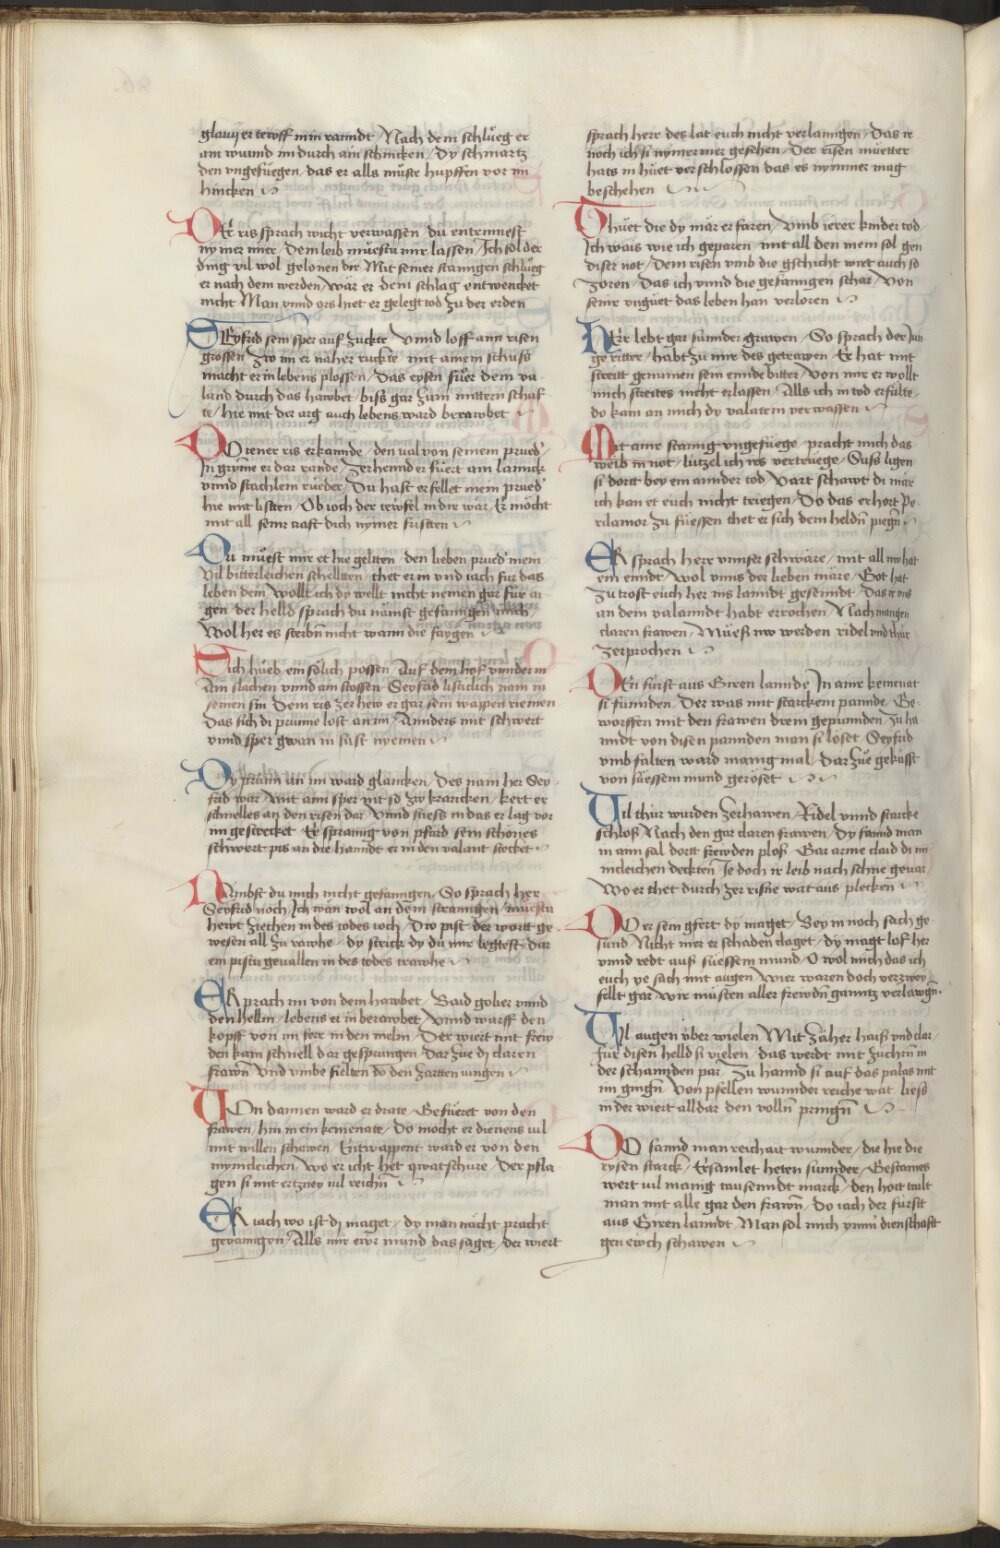 glavij er teroff min ranndt / Nach dem schlueg er
am wunnd im durch ain schincken / Dy schmartz
den vngefuegen / das er alls muste hupffen vor im
hincken
Der ris sprach wicht verwassen / du entrinnest
nymer mier / Dein leib muestu mir lassen / Ich sol der
ding vil wol gelonen dir / Mit seiner stanngen schlueg
er nach dem werden / wär er dem schlag entwencket
nicht Man vnnd ors hiet er gelegt tod zu der erden
Seyfrid sein sper auf zuckte / Vnnd loff ann risen
grossen / Zw im er näher ruckte / mit ainem schuss
macht er in lebens plossen / Das eysen fuer dem va
land durch das hawbet / biss gar zum mittern schaf
te / hie mit der arg auch lebens ward berawbet
Do iener ris erkannde / den val von seinem prued'
In grime er dar rande / Zer hennd er fuert ain lannck
vnnd stachlein rueder / Du hast erfellet mein prued'
hie mit listen / Ob ioch der tewfel in dir war / Er mocht
mit all seinr craft dich nymer fristen
Du muest mir et hie gelten / den lieben prued' mein
Vil bitterleichen schellten / thet er in vnd iach fur das
leben dein / Wollt ich dy wellt nicht nemen gar fur ai
gen / der helld sprach du namst gefanngen mich /
Wol her es sterbn nicht wann die faygen
Sich hueb ein solich possen / Auf dem hof vnnder in
Ain slachen vnnd ain stossen / Seyfrid listiclich nam in
seinen sin / Dem ris zer hew er gar sein wappen riemen
Das sich di prunne lost an im / Annders mit schwert
vnnd sper gwan in sust nyemen
Dy prunn an im ward glancken / Des nam her Sey
frid war / Mit aim sper nit so zw krancken / kert er
schnelles an den risen dar / Vnnd stiess in das er lag vor
im gestrecket / Er spranng von pfard sein schones
schwert pis an die hanndt er in den valant stecket
Nimbst du mich nicht gefanngen / So sprach her
Seyfrid noch / Ich wän wol an dem stranngen / muestu
hewt ziehen in des todes ioch / Dw pist der wortt ge
wesen all zu rawhe / dy strick dy du mir legtest / dar
ein pistu gevallen in des todes trawhe
Er prach im von dem hawbet / Baid gober vnnd
den hellm / lebens er in berawbet / Vnnd warff den
kopff von im ferr in den melm / Der wiert mit frew
den kam schnell dar gesprungen / Dar zue di claren
frawn Vnd vmbe fielten do den zartten iungen
Von dannen ward er drate / Gefueret von den
frawen / hin in ein kemenate / Do mocht er dienens vil
mit willen schawen / Entwappent ward er von den
mynicleichen / wo er icht het qwatschure / Der pfla
gen si mit ertzney vil reichn
Er iach wo ist di maget / dy man nacht pracht
gevanngen / Alls mir ewr mund das saget / der wiert
sprach herr des lat euch nicht verlanngen / Das ir
noch ich si nymermer gesehen / Der risen muetter
hats in huet verschlossen das es nymmer mag
beschehen
Thuet die dy mär erfaren / Vmb ierer kinder tod
Ich wais wie ich geparen / mit all den mein sol gen
diser not / Dem risen vmb die gschicht wirt auch so
zoren / Das ich vnnd die gefanngen schar / Von
seinr vnguet das leben han verloren
Nir lebt gar sunnder grawen / So sprach der iun
ge ritter / habt zu mir des getrawen / Er hat mit
streitt genumen sein ennde bitter / Von mir er wollt
mich streites nicht erlassen / Alls ich in tod erfalte /
do kam an mich dy valatein verwassen
Mit ainr stanng vngefuege / pracht mich das
weib in not / lutzel ich irs vertruege / Suss ligen
si dortt bey ein annder tod / Vart schawt di mär
ich kan et euch nicht triegen / Do das erhort Po
rilamor zu fuessen thet er sich dem heldn piegn
Er sprach herr vnnser schwäre / mit all nw hat
ein ennd / Wol vnns der lieben märe / Got hat
zu trost euch her ins lanndt gesenndt / Das ir vns
an dem valanndt habt errochen / Nach manigen
claren frawen / Muess nw werden ridel vnd thür
zerprochen
Den furst aus Giren lannde / In ainr kemenat
si funnden / Der was mit starckem pannde / Ge
worffen mit den frawen drein gepunnden / Zu ha
nndt von disen pannden man si loset / Seyfrid
vmb falten ward manig mal / Dar zue gekusst
von suessem mund geroset
Vil thür wurden zerhawen / Ridel vnnd starcke
schloss / Nach den gar claren frawen / Dy fannd man
in aim sal dortt frewden ploss / Gar arme claid di mi
nicleichen deckten / Je doch ir leib nach schne gevar
Wo er thet durch zer risne wat aus plecken
Do er sein gfert dy maget / Bey in noch sach ge
sund / Nicht mer er schaden claget / dy magt lof her
vnnd redt auss suessem mund / O wol mich das ich
euch ye sach mit augen / Wier waren doch verzwey
fellt gar / Wir muesten aller frewdn ganntz verlawgn
Vil augen über wielen / Mit zäher haiss vnd clar /
Fur disen helld si vielen / das werdt mit zuchtn in
der schamden par / Zu hannd si auf das palas mit
im gingn / Von pfellen wunnder reiche wat / liess
in der wiert all dar den volln pringn
Do fannd man reichait wunnder / die hie die
rysen starck / Ersamlet heten sunnder / Gestaines
wert vil manig tausenndt marck / den hort tailt
man mit alle gar den frawn / Do iach der furstt
aus Giren lanndt / Man sol mich ynnr dienschafft
gen ewch schawen